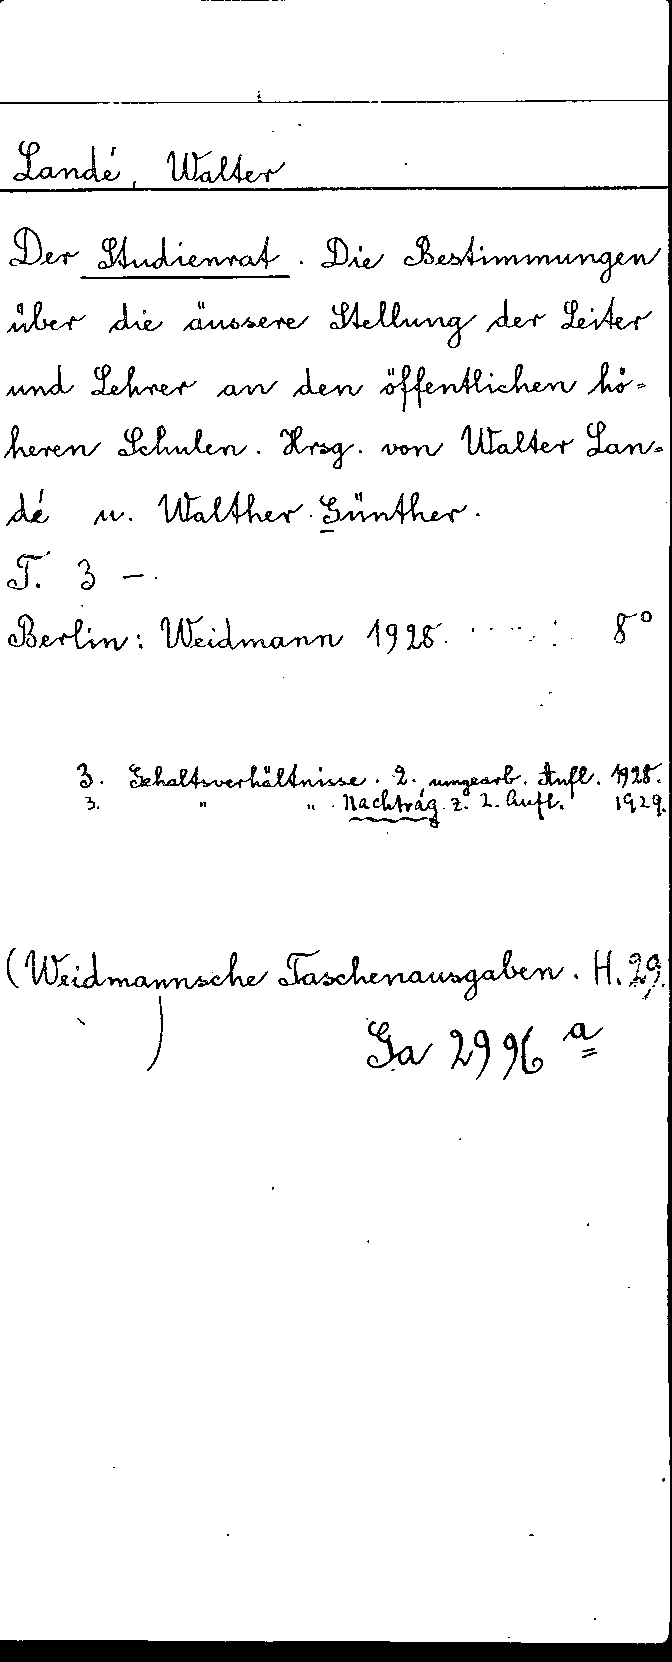 Landé, Walter
Der Studienrat. Die Bestimmungen
über die äussere Stellung der Leiter
und Lehrer an den öffentlichen hö-
heren Schulen. Hrsg. von Walter Lan-
dé u. Walther Günther.
T. 3 -.
Berlin: Weidmann 1928. 8°
3. Gehaltsverhältnisse. 2. umgearb. Aufl. 1928.
3. " " . Nachtrag z. 2. Aufl. 1929.
(Weidmannsche Taschenausgaben. H. 29.
)
Ga 2996 a